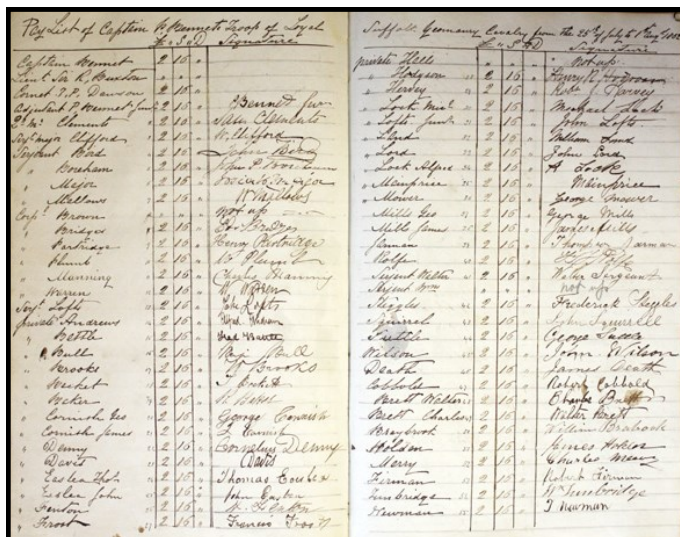 Pay List of Captain P. Bennets Troop of Loyal
£ " S " D Signature
Captain Bennet 2 16 "
Lieut Sir R. 2 16 "
Cornet P.P. Dawson 2 16 "
Adjutant P Bennet Junr 2 16 " P Bennet Junr
Qr Mr Clement 2 16 " Clements
Sergt major Clifford 2 16 " W. Clifford
Sergeant Bird 2 16 " John Bird
" Boreham 2 16 " John P Boreham
" Major 2 16 " Major
" Mallows 2 16 " W Mallows
Corpl Brown " " " not up
" Bridges 2 16 " Edw Bridges
" Partridge 2 16 " Henry Partridge
" Plumb 2 16 " Wm Plumb
" Manning 2 16 " Charles Manning
" Warren 2 16 " W Warren
Sergt Lofts 2 16 " Lofts
private Andrews 2 16 "
" Bettle 2 16 "
" Bull 2 16 " Benj Bull
" Brooke 2 16 " W Brooks
" 2 16 "
" 2 16 "
" Cornish Geo 2 16 " George Cornish
" Cornish James 2 16 " J Cornish
" Denny 2 16 " Cornelius Denny
" Davis 2 16 " Davis
" Easlea Thos 2 16 " Thomas Easlea
" Easlea John 2 16 " John Easlea
" Fenton 2 16 "
" Frost 2 16 " Francis Frost
Suffolk Yeomanry Cavalry from the 25th of July to 1st Augt
£ " S " D Signature
private Halls " not up
" Hodgson 2 16 " Henry R Hodgson
" Hervey 2 16 " Robt Harvey
" Lock Micl 2 16 " Michael Lock
" Lofts Junr 2 16 " John Lofts
" 2 16 " William
" Lord 2 16 " John Lord
" Lock Alfred 2 16 " A Lock
" Mainprice 2 16 " Mainprice
" Mower 2 16 " George Mower
" Mills Geo 2 16 " George Mills
" Mills James 2 16 " James Mills
" Jarman 2 16 " Thompson Jarman
" Rolfe 2 16 "
" Sergent Walter 2 16 " Walter Sergeant
" Sergent Wm " " " not up
" Steggles 2 16 " Frederick Steggles
" Squirrel 2 16 " John Squirrell
" Tuttle 2 16 " George
" Wilson 2 16 " John Wilson
" Death 2 16 " James Death
" Cobbold 2 16 " Robert Cobbold
" Brett Walter 2 16 " Charles Brett
" Brett Charles 2 16 " Walter Brett
" Braybrook 2 16 " William
" Holdon 2 16 " James Holdon
" Merry 2 16 " Charles Merry
" Firman 2 16 " Robert Firman
" 2 16 " Wm
" Newman 2 16 " J Newman